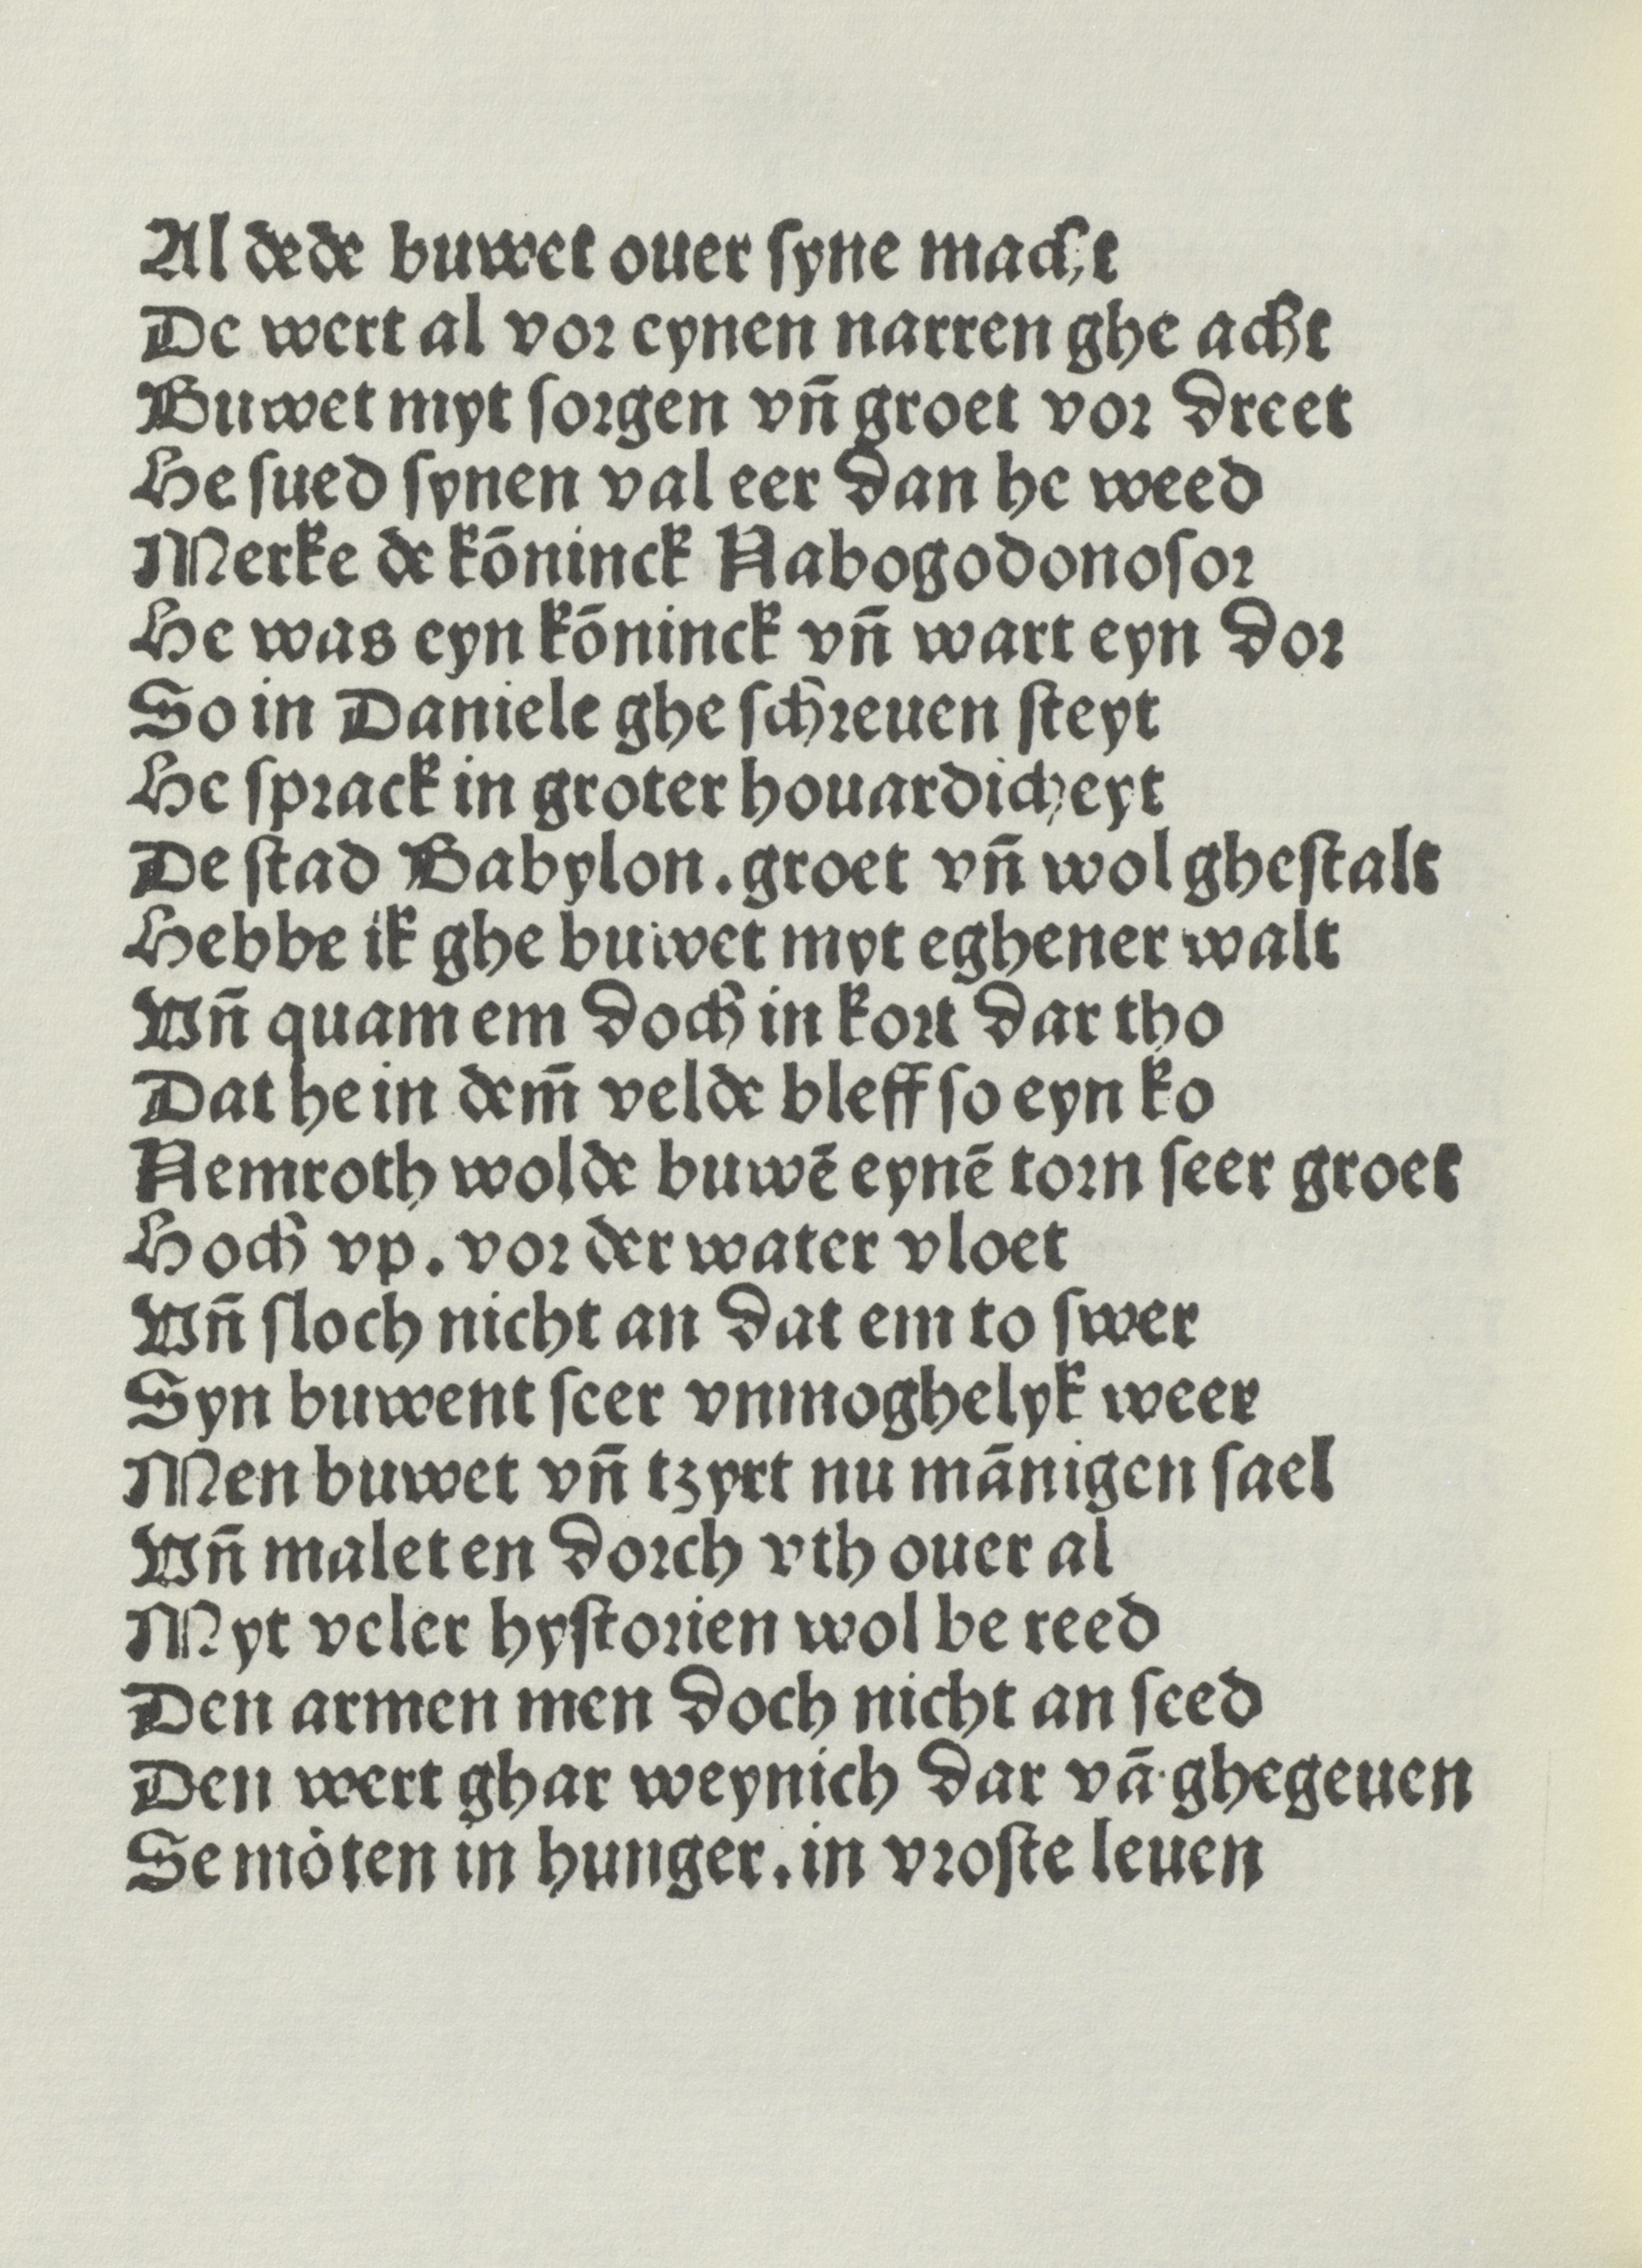 Al dede buwet ouer syne macht
De wert al vor eynen narren ghe acht
Buwet myt sorgen vn̄ groet vor dreet
He sued synen val eer dan he weed
Merke de kōninck Nabogodonosor
He was eyn kōninck vn̄ wart eyn dor
So in Daniele ghe schreuen steyt
He sprack in groter houardicheyt
De stad Babylon. groet vn̄ wol ghestalt
Hebbe ik ghe buwet myt eghener walt
Vn̄ quam em doch in kort dar tho
Dat he in dem̄ velde bleff so eyn ko
Nemroth wolde buwē eynē torn seer groet
Hoch vp. vor der water vloet
Vn̄ sloch nicht an dat em to swer
Syn buwent seer vnmoghelyk weer
Men buwet vn̄ tzyrt nu mānigen sael
Vn̄ malet en dorch vth ouer al
Myt veler hystorien wol be reed
Den armen men doch nicht an seed
Den wert ghar weynich dar vā ghegeuen
Se mȯten in hunger. in vroste leuen